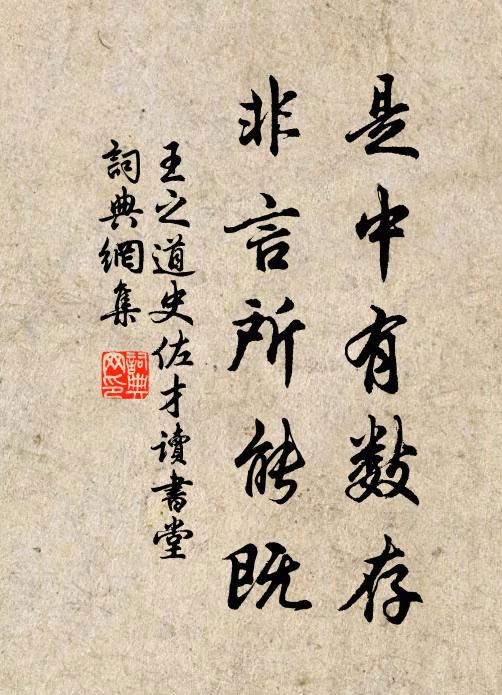 是中有数存
非言所能既
王之道史佐才讀書堂
詞典網集
詞典网印